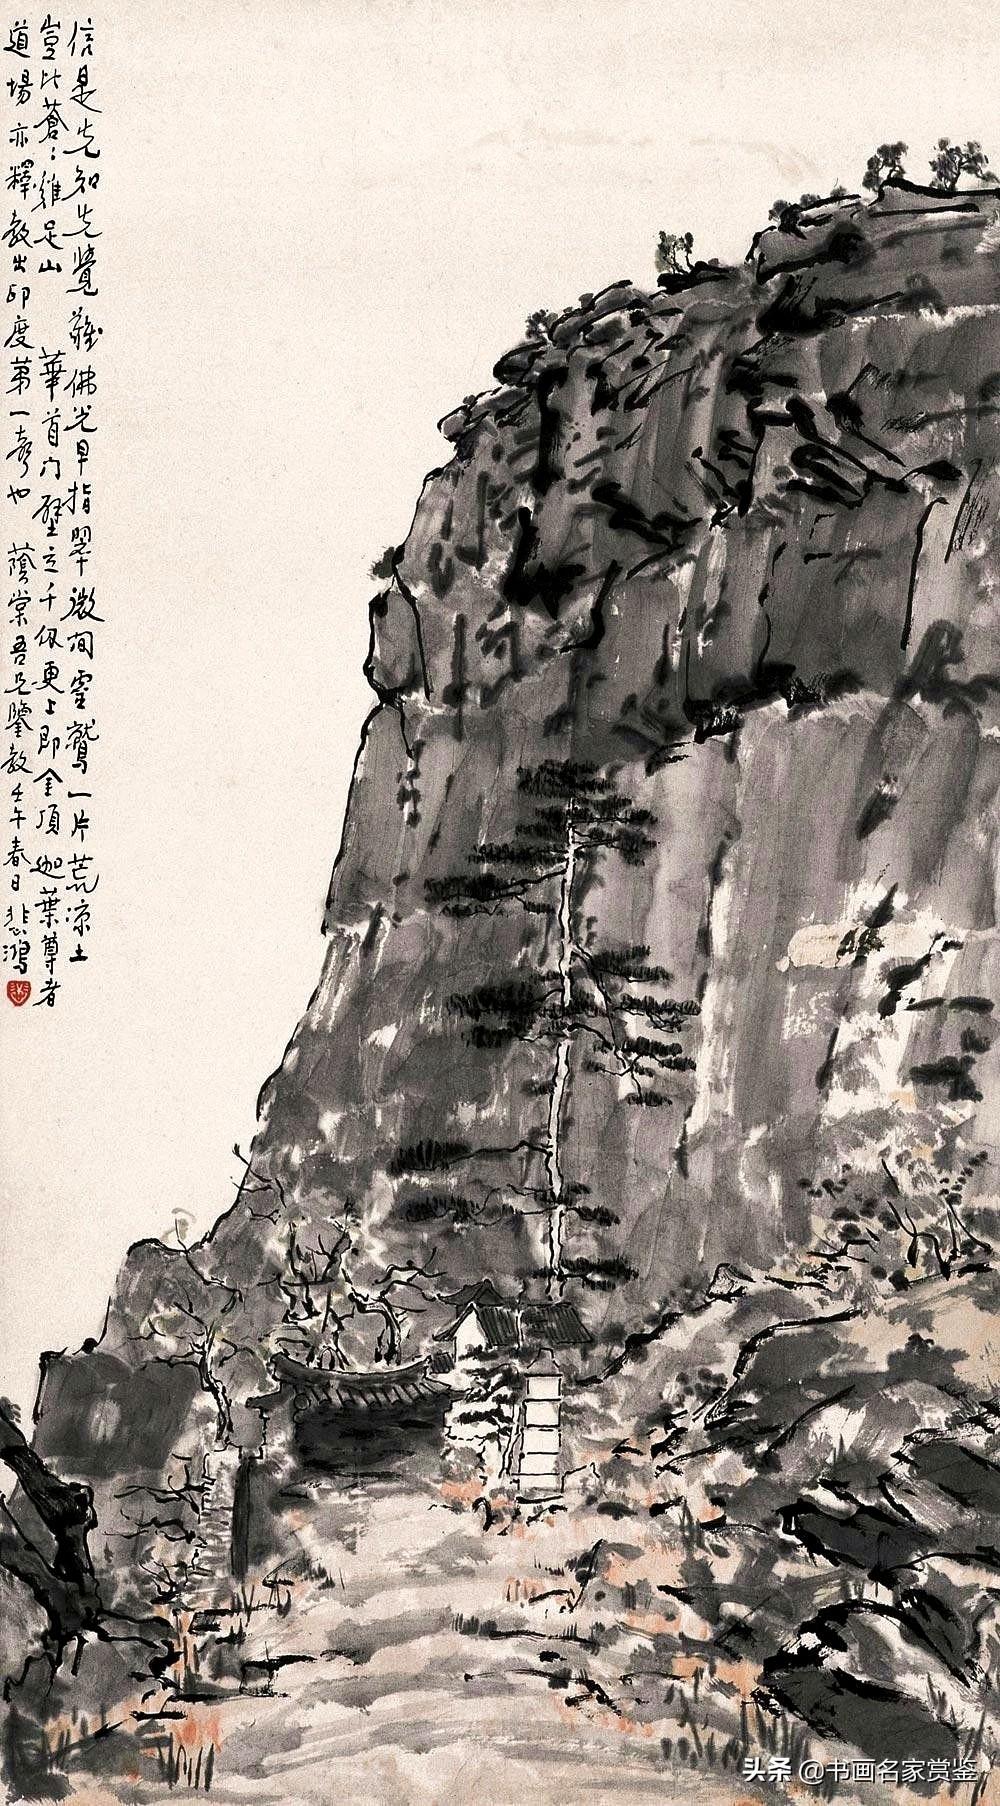 信是先知先覺難佛光早指翠微間靈鷲一片荒凉土
豈比蒼〻雞足山 華首門壁立千仞更上即金頂迦葉尊者
道場亦釋教出印度第一聲也 蔭棠吾兄鑒教壬午春日悲鴻
头条 @书画名家赏鉴